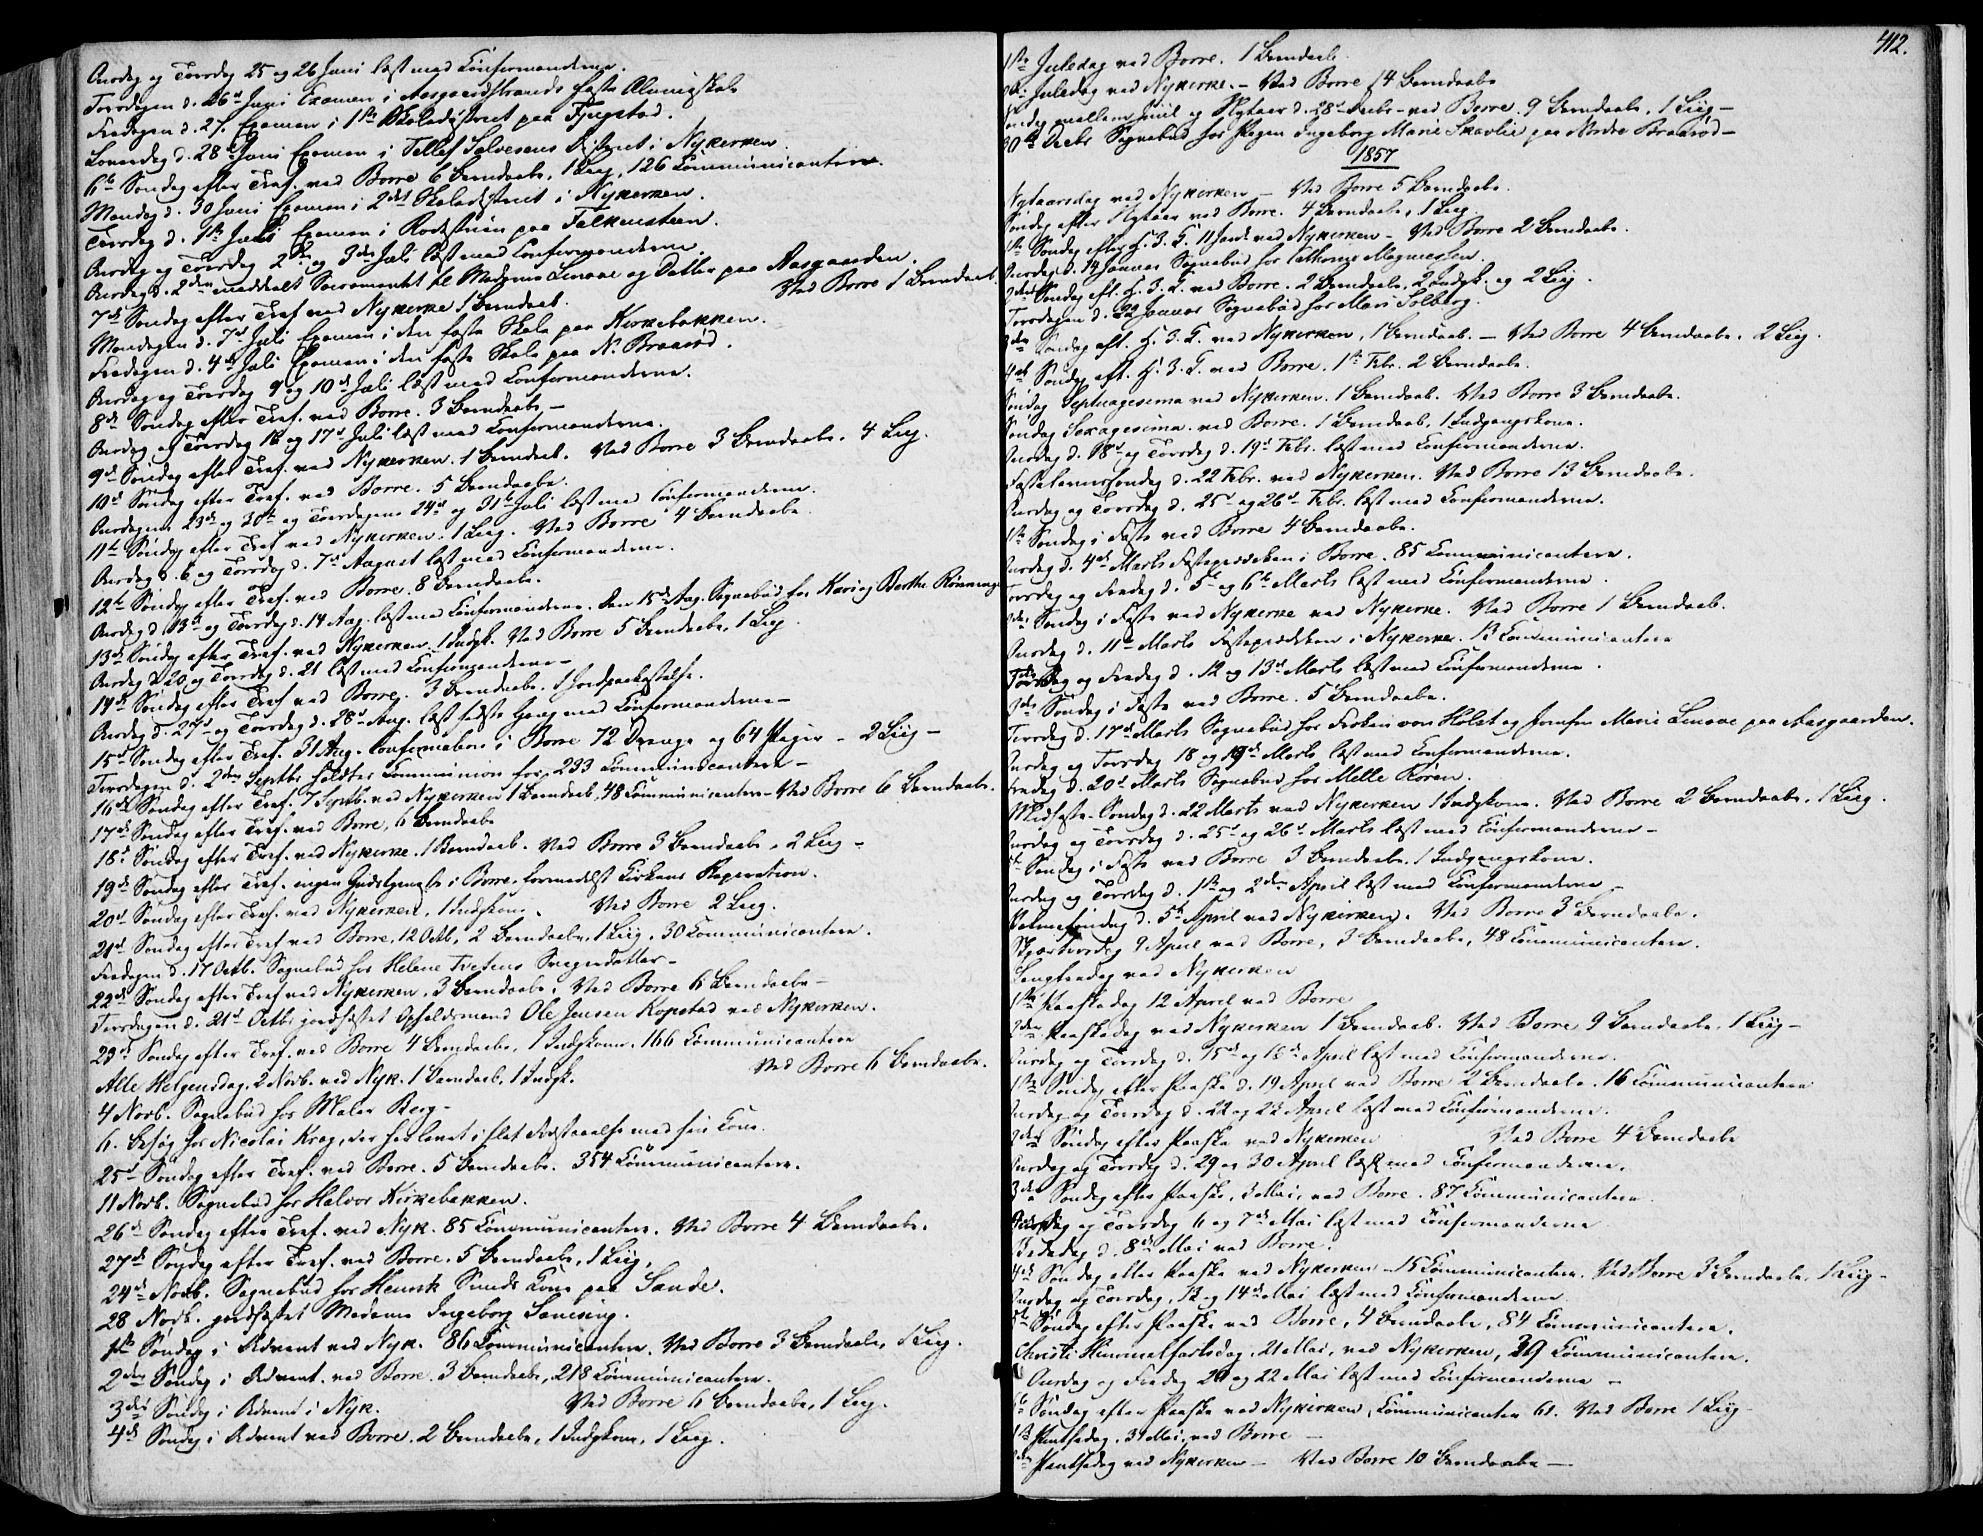 Onsdag og Torsdag 25 og 26 Juni læst med Confirmanderne.
Torsdagen d. 26d Juni Examen i Aasgaardstrands faste Almueskole
Fredagen d. 27. Examen i 1ste Skoledistrict paa Fyugstad.
Løverdag d. 28d Juni Examen i Tellef Salvesens District i Nykirken.
6te Søndag efter Tref. ved Borre 6 Barndaabe, 1 Liig, 126 Communicantere.
Mandag d. 30 Juni Examen i 2det Skoledistrict i Nykirken.
Tirsdag d. 1ste Juli Examen i paa Falkensteen.
Onsdag og Torsdag 2den og 3die Juli læst med Confirmanderne.
Onsdag d. 2den meddelt Sacramentet til Madame Linaae og Datter paa Aasgaarden.
7de Søndag efter Tref. ved Nykirke 1 Barndaab. Ved Borre 1 Barndaab.
Mandagen d. 7d Juli Examen i den faste Skole paa Kirkebakken.
Fredagen d. 4de Juli Examen i den faste Skole paa N. Braarød.
Onsdag og Torsdag 9 og 10d Juli læst med Confirmanderne.
8de Søndag efter Tref. ved Borre. 3 Barndaabe. –
Onsdag og Torsdag 16 og 17d Juli læst med Confirmanderne.
9de Søndag efter Tref. ved Nykirken. 1 Barndaab. Ved Borre 3 Barndaabe. 4 Liig.
10de Søndag efter Tref. ved Borre. 5 Barndaabe.
Onsdagene 23de og 30te og Torsdagene 24de og 31te Juli læst med Confirmanderne.
11te Søndag efter Tref. ved Nykirken. 1 Liig. Ved Borre 4 Barndaabe
Onsdag d. 6 og Torsdag d. 7d August læst med Confirmanderne.
12te Søndag efter Tref. ved Borre. 8 Barndaabe.
Onsdag d. 13de og Torsdag d. 14 Aug. læst med Confirmanderne. Den 15de Aug. Sognebud hos Kari og Berthe Rønninge
13de Søndag efter Tref. ved Nykirken. 1 Indgk. Ved Borre 5 Barndaabe, 1 Liig.
Onsdag d. 20 og Torsdag d. 21 læst med Confirmanderne –
14de Søndag efter Tref. ved Borre. 3 Barndaabe. 1 Jordpaakastelse.
Onsdag d. 27d og Torsdag d. 28de Aug. læst sidste Gang med Confirmanderne –
15de Søndag efter Tref. 31 Aug. Confirmation i Borre 72 Drenge og 64 Piger – 2 Liig –
Tirsdagen d. 2den Septbr. holdtes Communion for 233 Communicantere –
16de Søndag efter Tref. 7 Septb. ved Nykirken 1 Barndaab, 48 Communicantere – Ved Borre 6 Barndaabe.
17de Søndag efter Tref. ved Borre, 6 Barndaabe
18de Søndag efter Tref. ved Nykirke. 1 Barndaab. Ved Borre 3 Barndaabe, 2 Liig –
19de Søndag efter Tref. ingen Gudstjeneste i Borre, formedelst Kirkens Reperation.
20de Søndag efter Tref. ved Nykirken, 1 Indgkone. Ved Borre 2 Liig.
21de Søndag efter Tref. ved Borre, 12 Octb, 2 Barndaabe, 1 Liig, 30 Communicantere.
Fredagen d. 17 Octb. Sognebud hos Helene Tvetens Svigerdatter –
22de Søndag efter Tref. ved Nykirken, 3 Barndaabe. Ved Borre 6 Barndaabe –
Tirsdagen d. 21de Octbr. jordfæstet Opholdsmand Ole Jensen Kopstad ved Nykirken.
23de Søndag efter Tref. ved Borre 4 Barndaabe, 1 Indgkone, 166 Communicantere
Alle Helgensdag. 2 Novb. ved Nyk. 1 Barndaab, 1 Indgk. Ved Borre 6 Barndaabe.
4 Novb. Sognebud hos Maler Berg –
6. Besøg hos Nicolai Krog, der har levet i slet Forstaaelse med sin Kone.
25de Søndag efter Tref. ved Borre. 5 Barndaabe. 354 Communicantere.
11 Novb. Sognebud hos Halvor Kirkebakken.
26de Søndag efter Tref. ved Nyk. 85 Communicantere. Ved Borre 4 Barndaabe.
27de Søndag efter Tref. ved Borre. 5 Barndaabe, 1 Liig.
24de Novb. Sognebud hos Henrik Sunds Kone paa Sande.
28 Novb. jordfæstet Madame Ingeborg
1ste Søndag i Advent ved Nyk. 86 Communicantere. Ved Borre 3 Barndaabe, 1 Liig.
2den Søndag i Advent ved Borre. 3 Barndaabe, 218 Communicantere.
3die Søndag i Advent i Nyk. Ved Borre 6 Barndaabe, 1 Liig.
4de Søndag i Advent ved Borre. 2 Barndaabe, 1 Indgkone, 1 Liig.
412.
1ste Juledag ved Borre. 1 Barndaab.
2den Juledag ved Nykirke. – Ved Borre 14 Barndaabe
Søndag mellem Juul og Nytaar d. 28de Decbr. ved Borre. 9 Barndaabe, 1 Liig –
30te Decbr. Sognebud hos Pigen Ingeborg Marie Skavlie paa Nordre Braarød –
1857
Nytaarsdag ved Nykirken – Ved Borre 5 Barndaabe.
Søndag efter Nytaar ved Borre. 4 Barndaabe, 1 Liig.
1ste Søndag efter H. 3. K. 11 Jan. ved Nykirken – Ved Borre 2 Barndaabe.
Onsdag d. 14 Januar Sognebud hos Magnussen.
2den Søndag eft. H. 3. K. ved Borre. 2 Barndaabe, 2 Indgk. og 2 Liig.
Torsdagen d. 22 Januar Sognebud hos Mari Solberg.
3die Søndag eft. H. 3. K. ved Nykirken, 1 Barndaab. – Ved Borre 4 Barndaabe. 2 Liig.
4de Søndag eft. H. 3. K. ved Borre. 1ste Febr. 2 Barndaabe.
Søndag Septuagesima ved Nykirken. 1 Barndaab. Ved Borre 3 Barndaabe.
Søndag Sexagesima ved Borre. 1 Barndaab, 1 Indgangskone.
Onsdag d. 18d og Torsdag d. 19d Febr. læst med Confirmanderne.
Fastelavnssøndag d. 22 Febr. ved Nykirken. Ved Borre 13 Barndaabe.
Onsdag og Torsdag d. 25d og 26d Febr. læst med Confirmanderne.
1ste Søndag i Faste ved Borre 4 Barndaabe.
Onsdag d. 4de Marts Fasteprædiken i Borre. 85 Communicantere.
Torsdag og Fredag d. 5te og 6te Marts læst med Confirmanderne.
2den Søndag i Faste ved Nykirke ved Nykirke. Ved Borre 1 Barndaab.
Onsdag d. 11te Marts Fasteprædiken i Nykirke. 13 Communicantere
Torsdag og Fredag d. 12 og 13de Marts læst med Confirmanderne.
3die Søndag i Faste ved Borre. 5 Barndaabe.
Tirsdag d. 17de Marts Sognebud hos Frøken von Holst og Jomfru Marie Linaae paa Aasgaarden.
Onsdag og Torsdag 18 og 19de Marts læst med Confirmanderne.
Fredag d. 20d Marts Sognebud hos Melle Røren.
Midfaste-Søndag d. 22 Marts ved Nykirken 1 Indgkone. Ved Borre 2 Barndaabe, 1 Liig.
Onsdag og Torsdag d. 25d og 26d Marts læst med Confirmanderne –
5te Søndag i Faste ved Borre 3 Barndaabe. 1 Indgangskone.
Onsdag og Torsdag d. 1ste og 2den April læst med Confirmanderne –
Palmesøndag d. 5te April ved Nykirken. Ved Borre 3 Barndaabe.
Skjærtorsdag 9 April ved Borre, 3 Barndaabe, 48 Communicantere.
Langfredag ved Nykirken
1ste Paaskedag 12 April ved Borre
2den Paaskedag ved Nykirken 1 Barndaab. Ved Borre 9 Barndaabe, 1 Liig –
Onsdag og Torsdag d. 15de og 16de April læst med Confirmanderne.
1ste Søndag efter Paaske d. 19 April ved Borre 2 Barndaabe. 16 Communicantere
Onsdag og Torsdag d. 22 og 23 April læst med Confirmanderne.
2den Søndag efter Paaske ved Nykirken Ved Borre 4 Barndaabe
Onsdag og Torsdag d. 29 og 30 April læst med Confirmanderne.
3die Søndag efter Paaske, 3 Mai, ved Borre. 87 Communicantere
Onsdag og Torsdag 6 og 7de Mai læst med Confirmanderne
Bededag d. 8de Mai ved Borre.
4de Søndag efter Paaske ved Nykirken – 15 Communicantere. Ved Borre 3 Barndaabe, 1 Liig –
Onsdag og Torsdag, 13 og 14de Mai læst med Confirmanderne.
5te Søndag efter Paaske ved Borre, 4 Barndaabe, 84 Communicantere.
Christi Himmelfartsdag, 21 Mai, ved Nykirken, 39 Communicantere.
Onsdag og Fredag 20 og 22 Mai læst med Confirmanderne –
6te Søndag efter Paaske ved Nykirken, Communicanter 61. Ved Borre 1 Liig
1ste Pintsedag, 31 Mai, ved Borre –
2den Pintsedag ved Nykirken – Ved Borre 10 Barndaabe –